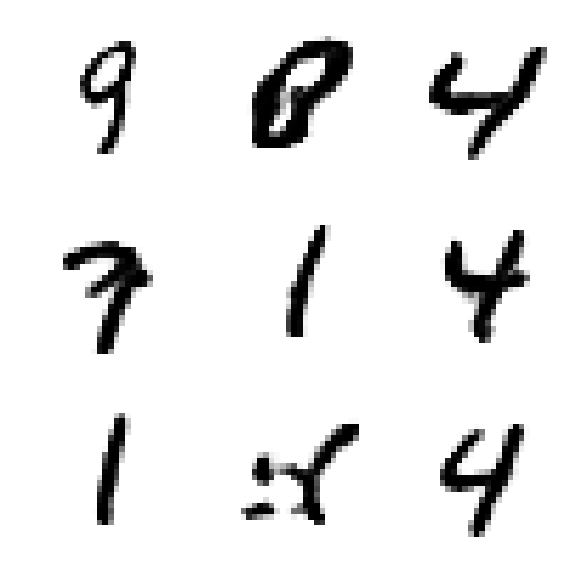 9 8 4
7 1 4
1 4